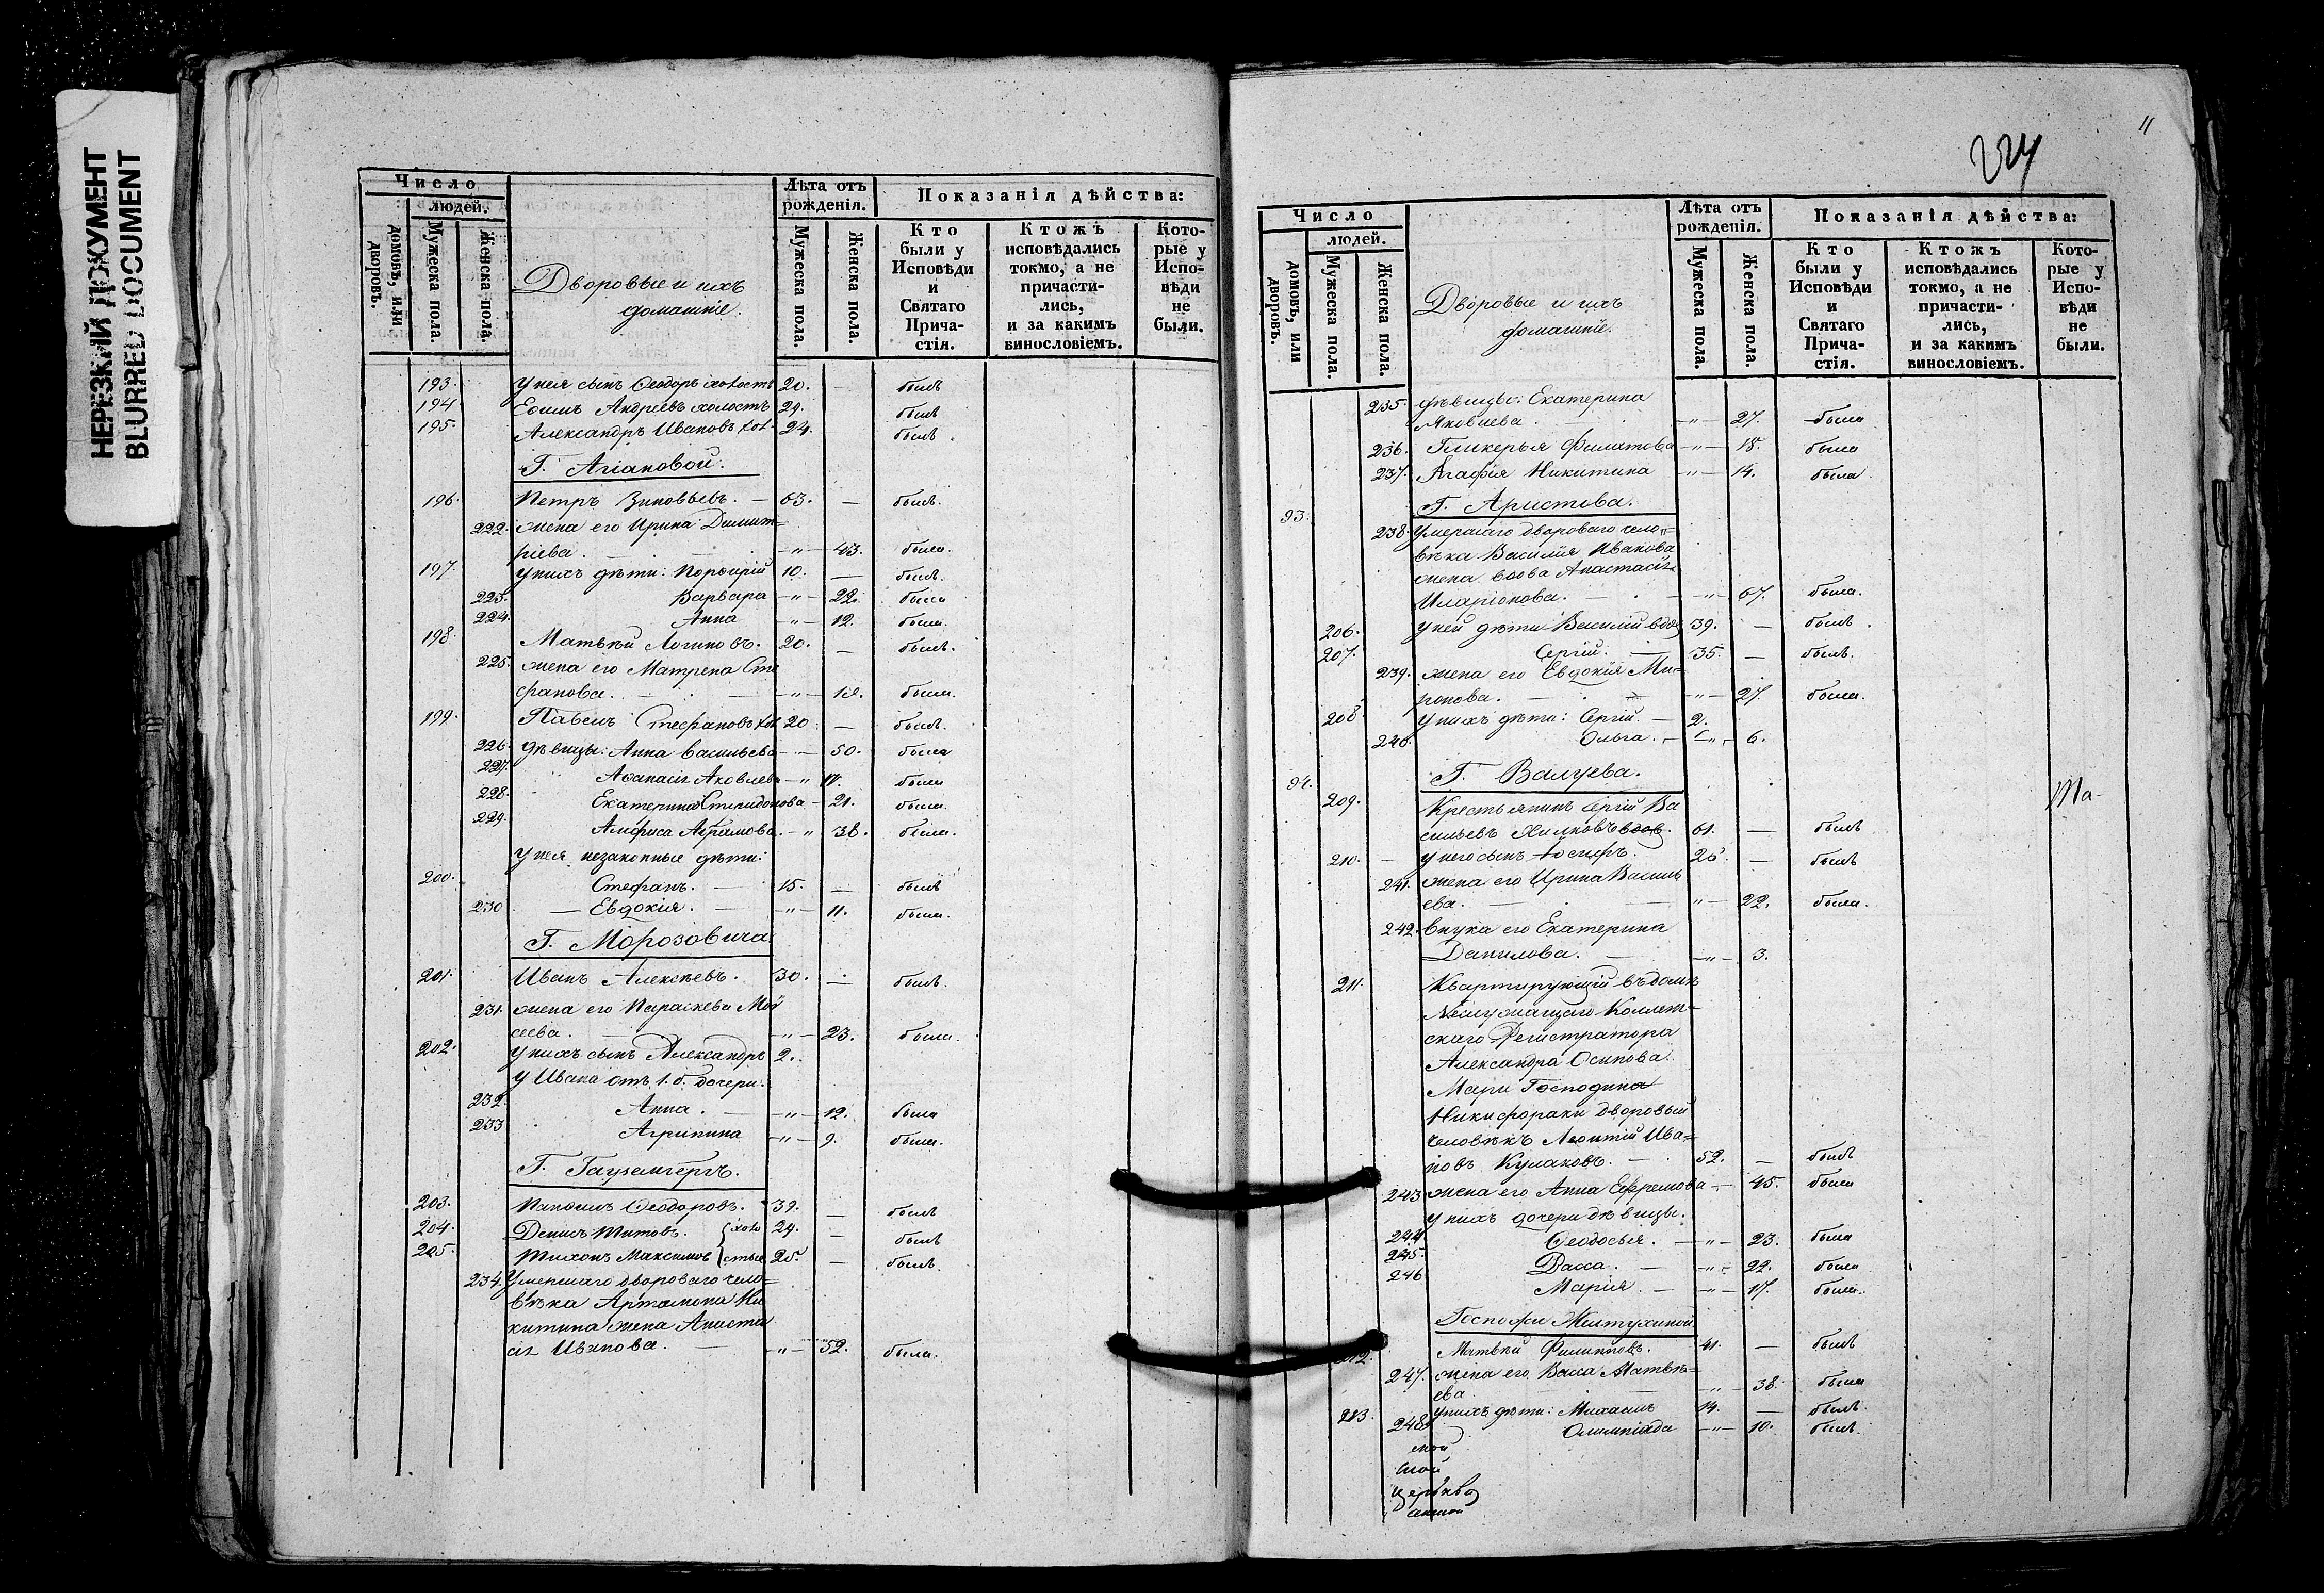 НЕРЕЗКИЙ ДОКУМЕНТ
BLURRED DOCUMENT
Число
людей.
домовъ, или дворовъ.
Мужеска пола.
Женска пола.
Дворовые и ихъ
домашніе.
Лѣта отъ
рожденія.
Мужеска пола.
Женска пола.
Показанія дѣйства:
Кто
были у
Исповѣди
и
Святаго
Прича-
стія.
Ктожъ
исповѣдались
токмо, а не
причасти-
лись,
и за какимъ
винословіемъ.
Кото-
рые у
Испо-
вѣди
не
были.
193. У нея сынъ Ѳеодоръ холостъ 20. — былъ
194. Андреевъ холостъ 29. былъ
195. Александръ Ивановъ хол. 24. былъ.
Г.
196. Петръ Зиновьевъ. — 63. — былъ.
222. жена его Ирина Димит=
ріева. — " — 43. была.
197. У нихъ дѣти: Порфирій 10. — былъ.
223. Варвара — " — 22. была
224. Анна — " — 12. была.
198. Матвѣй Логиновъ. 20. — былъ.
225. жена его Матрена Сте
фанова. — " — была.
199. Павелъ Стефановъ хол. 20. — былъ.
226. дѣвицы: Анна Васильева — — 50. была
227. Яковлева — " 17. была
228. Екатерина Спиридонова — 21. была.
229. Анфиса Абрамова. — " 38. была.
У нея незаконные дѣти:
200. Стефанъ. — 15. — былъ
230 — Евдокія. — " — 11. была.
Г. Морозовича.
201. Иванъ Алексѣевъ. 30. — былъ.
231. жена его Параскева Мой
сеева. — " — 23. была.
202. У нихъ сынъ Александръ 2.
У Ивана отъ 1. б. дочери:
232. Анна. — " — 12. была
233 Агрипина — " — 9. была.
Г.
203. Ѳеодоровъ. 39. — былъ
204. Денисъ Титовъ. холо 24. — былъ
205. Тихонъ Максимовъ стые 25. — былъ.
234. Умершаго двороваго чело=
вѣка Артамона Ни
китина жена Анаста
сія Иванова. — " — 52. была.
11
224
Число
людей.
домовъ, или дворовъ.
Мужеска пола.
Женска пола.
Дворовые и ихъ
домашніе.
Лѣта отъ
рожденія.
Мужеска пола.
Женска пола.
Показанія дѣйства:
Кто
были у
Исповѣди
и
Святаго
Прича-
стія.
Ктожъ
исповѣдались
токмо, а не
причасти-
лись,
и за какимъ
винословіемъ.
Кото-
рые у
Испо-
вѣди
не
были.
235. дѣвицы: Екатерина
Яковлева. — " — 27. была
236. Гликерья Филатова — " — 18. была
237. Агафія Никитина — " — 14. была.
93. Г. Аристова.
238. Умершаго двороваго чело=
вѣка Василія Иванова
жена вдова Анастасія
Иларіонова. — " — 67. была.
206. У ней дѣти Василій вдов 39. — былъ.
207. Сергій. — 35. — былъ.
239. жена его Евдокія Ми=
ронова. — " — 27. была.
208. У нихъ дѣти: Сергій. — 2.
240. Ольга. — " — 6.
94. Г. Валуева.
209. Крестьянинъ Сергій Ва
сильевъ вдов. 61. — былъ
210. У него сынъ Іосифъ. — былъ
241. жена его Ирина Василь
ева. — " — 22. была.
242. внука его Екатерина
Данилова. — " — 3.
211. Квартирующій въ домѣ
скаго Регистратора
Александра Осипова.
Господина
дворовый
человѣкъ Леонтій Ива=
новъ Кулаковъ. — 52. — былъ
243 жена его Анна Ефремова — 45. была
У нихъ дочери дѣвицы:
244 Ѳеодосья. — " — 23. была
245. Васса. — " — 22. была
246 Марія. — " — 17. была.
Госпожи Желтухиной
212. Матвѣй Филипповъ. 41. — былъ
247. жена его Васса Матвѣ=
ева. — " — 38. была
213. У нихъ дѣти: Михаилъ 14. — былъ.
248 Олимпіада — " — 10. была.
церкви
Ма-